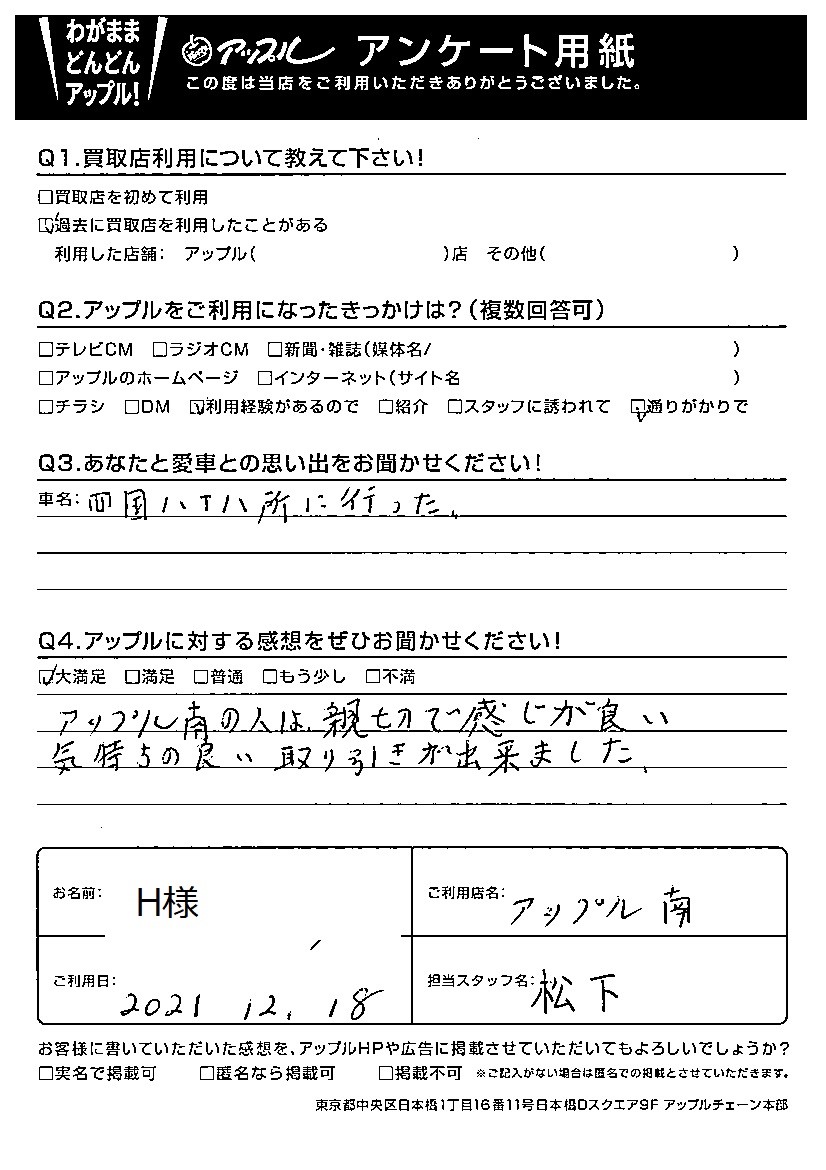 わがまま
どんどん
アップル!
アップル アンケート用紙
この度は当店をご利用いただきありがとうございました。
Q1.買取店利用について教えて下さい!
□買取店を初めて利用
☑過去に買取店を利用したことがある
利用した店舗: アップル( )店 その他( )
Q2.アップルをご利用になったきっかけは?(複数回答可)
□テレビCM □ラジオCM □新聞・雑誌(媒体名/ )
□アップルのホームページ □インターネット(サイト名 )
□チラシ □DM ☑利用経験があるので □紹介 □スタッフに誘われて ☑通りがかりで
Q3.あなたと愛車との思い出をお聞かせください!
車名: 四国八十八所に行った。
Q4.アップルに対する感想をぜひお聞かせください!
☑大満足 □満足 □普通 □もう少し □不満
アップル南の人は、親切で感じが良い
気持ちの良い取り引きが出来ました。
お名前: H様
ご利用店名: アップル南
ご利用日: 2021 12. 18
担当スタッフ名: 松下
お客様に書いていただいた感想を、アップルHPや広告に掲載させていただいてもよろしいでしょうか?
□実名で掲載可 □匿名なら掲載可 □掲載不可 ※ご記入がない場合は匿名での掲載とさせていただきます。
東京都中央区日本橋1丁目16番11号日本橋Dスクエア9F アップルチェーン本部